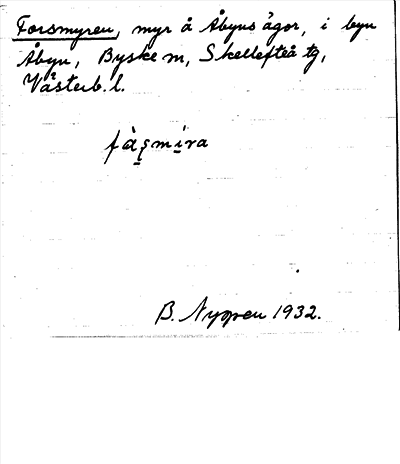 Forsmyren, myr å Åbyns ägor, i byn
Åbyn, Byske m, Skellefteå tg,
Västerb. l.
fàʂmìra
B. Nygren 1932.